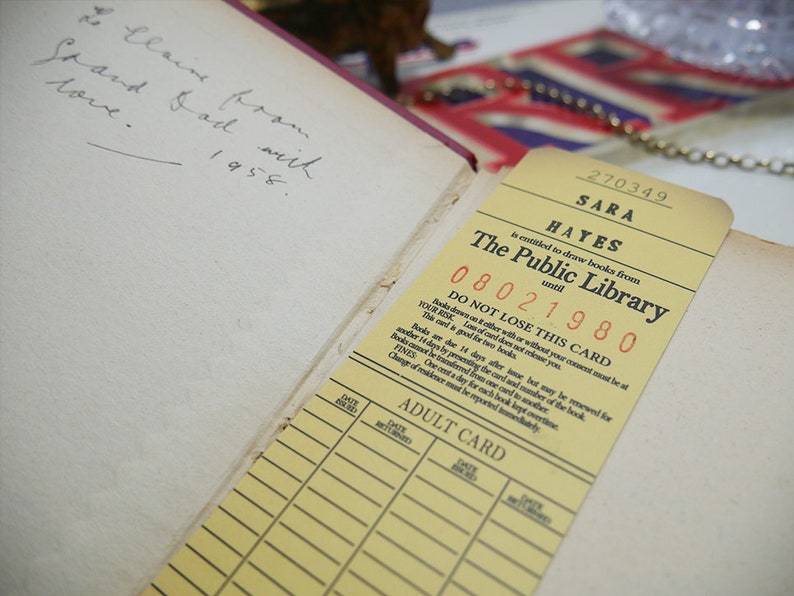 To Elaine from
Grand Dad with
love.
1958.
270349
SARA
HAYES
is entitled to draw books from
The Public Library
until
08021980
DO NOT LOSE THIS CARD
Books drawn on it either with or without your consent must be at
YOUR RISK. Loss of card does not release you.
This card is good for two books.
Books are due 14 days after issue but may be renewed for
another 14 days by presenting the card and number of the book.
Books cannot be transferred from one card to another.
FINES: One cent a day for each book kept overtime.
Change of residence must be reported immediately.
ADULT CARD
DATE ISSUED
DATE RETURNED
DATE ISSUED
DATE RETURNED